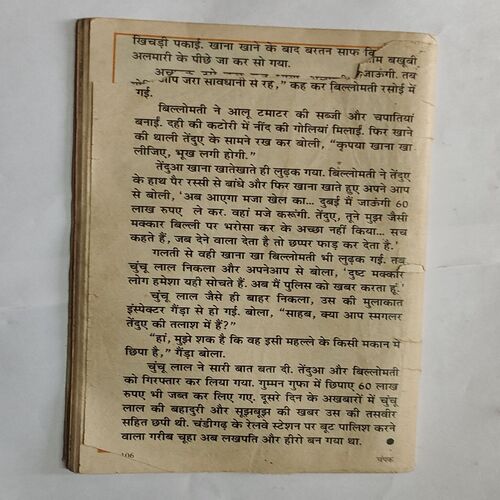 खिचड़ी पकाई. खाना खाने के बाद बरतन साफ
बखूबी
अलमारी के पीछे जा कर सो गया.
जाऊंगी. तब
आप जरा सावधानी से रह,” कह कर बिल्लोमती रसोई में
गई.
बिल्लोमती ने आलू टमाटर की सब्जी और चपातियां
बनाईं. दही की कटोरी में नींद की गोलियां मिलाईं. फिर खाने
की थाली तेंदुए के सामने रख कर बोली, “कृपया खाना खा
लीजिए, भूख लगी होगी.”
तेंदुआ खाना खातेखाते ही लुढ़क गया. बिल्लोमती ने तेंदुए
के हाथ पैर रस्सी से बांधे और फिर खाना खाते हुए अपने आप
से बोली, ‘अब आएगा मजा खेल का... दुबई में जाऊंगी 60
लाख रुपए ले कर. वहां मजे करूंगी. तेंदुए, तूने मुझ जैसी
मक्कार बिल्ली पर भरोसा कर के अच्छा नहीं किया... सच
कहते हैं, जब देने वाला देता है तो छप्पर फाड़ कर देता है.’
गलती से वही खाना खा बिल्लोमती भी लुढ़क गई. तब
चुंचू लाल निकला और अपनेआप से बोला, ‘दुष्ट मक्कार
लोग हमेशा यही सोचते हैं. अब मैं पुलिस को खबर करता हूं.’
चुंचू लाल जैसे ही बाहर निकला, उस की मुलाकात
इंस्पेक्टर गैंड़ा से हो गई. बोला, “साहब, क्या आप स्मगलर
तेंदुए की तलाश में हैं?”
“हां, मुझे शक है कि वह इसी महल्ले के किसी मकान में
छिपा है,” गैंड़ा बोला.
चुंचू लाल ने सारी बात बता दी. तेंदुआ और बिल्लोमती
को गिरफ्तार कर लिया गया. गुम्मन गुफा में छिपाए 60 लाख
रुपए भी जब्त कर लिए गए. दूसरे दिन के अखबारों में चुंचू
लाल की बहादुरी और सूझबूझ की खबर उस की तसवीर
सहित छपी थी. चंडीगढ़ के रेलवे स्टेशन पर बूट पालिश करने
वाला गरीब चूहा अब लखपति और हीरो बन गया था. ●
106
चंपक